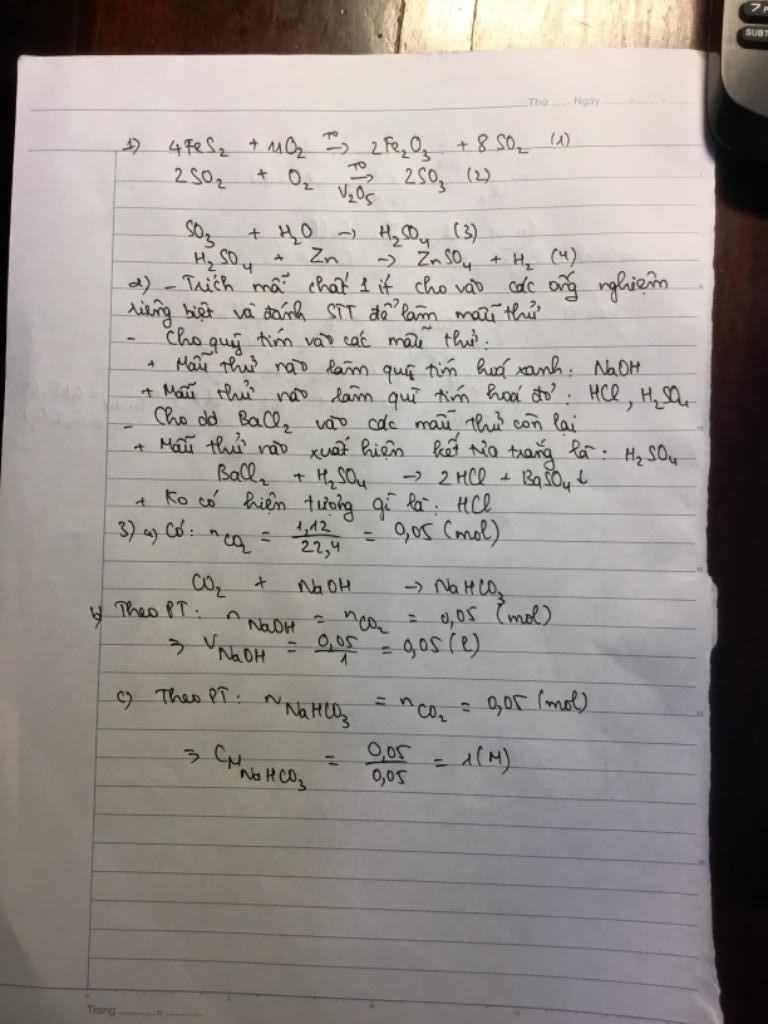 Thứ...... Ngày....... - ....... - .......
1) 4FeS₂ + 11O₂ →(T⁰) 2Fe₂O₃ + 8SO₂ (1)
2SO₂ + O₂ →(T⁰, V₂O₅) 2SO₃ (2)
SO₃ + H₂O → H₂SO₄ (3)
H₂SO₄ + Zn → ZnSO₄ + H₂ (4)
2) - Trích mỗi chất 1 ít cho vào các ống nghiệm
riêng biệt và đánh STT để làm mẫu thử
- Cho quỳ tím vào các mẫu thử:
+ Mẫu thử nào làm quỳ tím hoá xanh: NaOH
+ Mẫu thử nào làm quì tím hoá đỏ: HCl, H₂SO₄
- Cho dd BaCl₂ vào các mẫu thử còn lại
+ Mẫu thử nào xuất hiện kết tủa trắng là: H₂SO₄
BaCl₂ + H₂SO₄ → 2HCl + BaSO₄↓
+ Ko có hiện tượng gì là: HCl
3) a) Có: nCO₂ = 1,12/22,4 = 0,05 (mol)
CO₂ + NaOH → NaHCO₃
b) Theo PT: nNaOH = nCO₂ = 0,05 (mol)
⇒ VNaOH = 0,05/1 = 0,05 (l)
c) Theo PT: nNaHCO₃ = nCO₂ = 0,05 (mol)
⇒ CM NaHCO₃ = 0,05/0,05 = 1(M)
Trang ........... - ...........